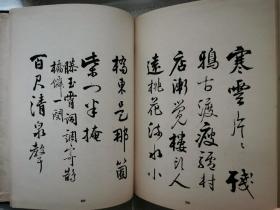 寒雲片々殘
鴉古渡瘦驢村
店漸覺樓頭人
遠桃花流水小
橋東是那箇
柴門半掩
滕玉霄詞調寄鵲
橋僊一闋
百尺清泉聲